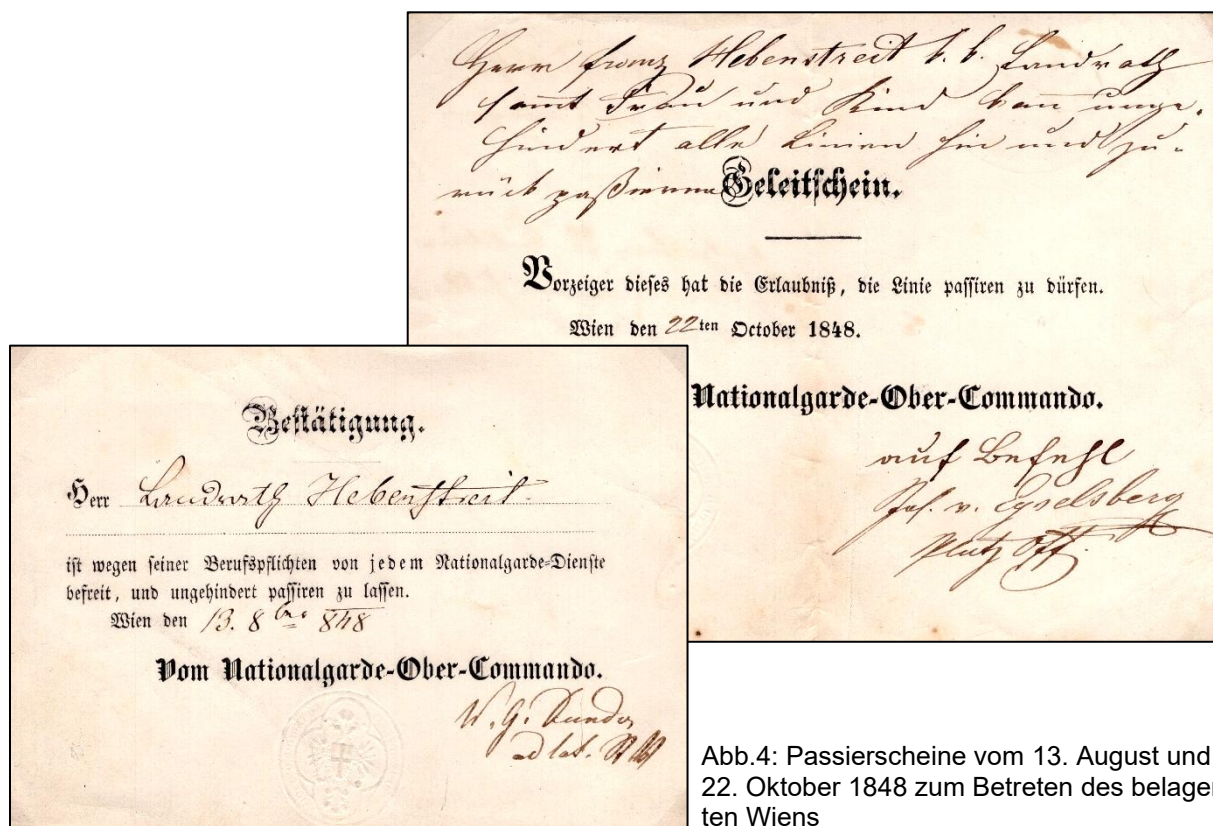 Herr Franz Hebenstreit k. k. Landrath
sammt Frau und Kind kann unge-
hindert alle Linien hin und zu-
rück paßieren
Geleitschein.
Vorzeiger dieses hat die Erlaubniß, die Linie passiren zu dürfen.
Wien den 22ten October 1848.
Nationalgarde-Ober-Commando.
auf Befehl
Jos. v. Eyselsberg
Platz Off.
Bestätigung.
Herr Landrath Hebenstreit
ist wegen seiner Berufspflichten von jedem Nationalgarde-Dienste
befreit, und ungehindert passiren zu lassen.
Wien den 13. 8bre 848
Vom Nationalgarde-Ober-Commando.
W. G. Dunder
ad lat.
Abb.4: Passierscheine vom 13. August und
22. Oktober 1848 zum Betreten des belager
ten Wiens